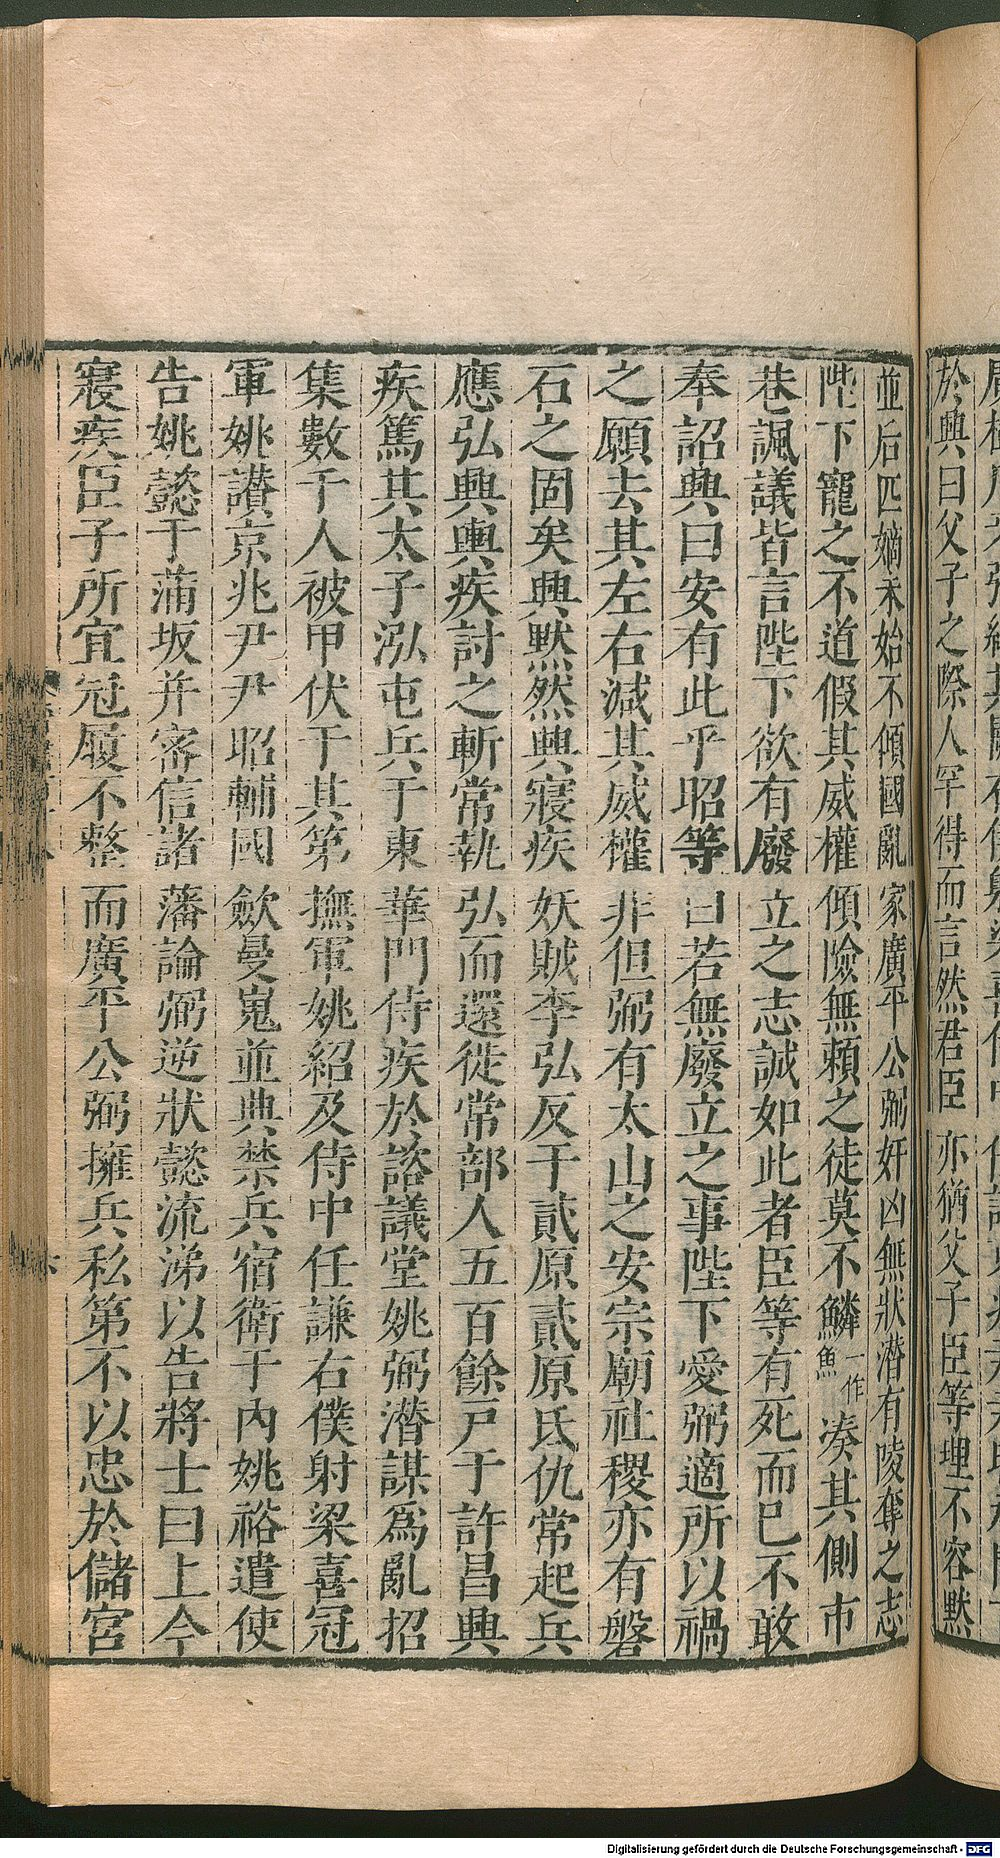 於興曰父子之際人罕得而言然君臣亦猶父子臣等理不容默
並后匹嫡未始不傾國亂家廣平公弼奸凶無狀潛有陵奪之志
陛下寵之不道假其威權傾險無賴之徒莫不鱗一作魚湊其側市
巷諷議皆言陛下欲有廢立之志誠如此者臣等有死而已不敢
奉詔興曰安有此乎昭等曰若無廢立之事陛下愛弼適所以禍
之願去其左右減其威權非但弼有太山之安宗廟社稷亦有磐
石之固矣興默然興寢疾妖賊李弘反于貳原貳原氏仇常起兵
應弘興輿疾討之斬常執弘而還徙常部人五百餘戸于許昌興
疾篤其太子泓屯兵于東華門侍疾於諮議堂姚弼潛謀爲亂招
集數千人被甲伏于其第撫軍姚紹及侍中任謙右僕射梁喜冠
軍姚讃京兆尹尹昭輔國歛曼嵬並典禁兵宿衛于内姚裕遣使
告姚懿于蒲坂并密信諸藩論弼逆狀懿流涕以告將士曰上今
寢疾臣子所宜冠履不整而廣平公弼擁兵私第不以忠於儲宮
Digitalisierung gefördert durch die Deutsche Forschungsgemeinschaft - DFG